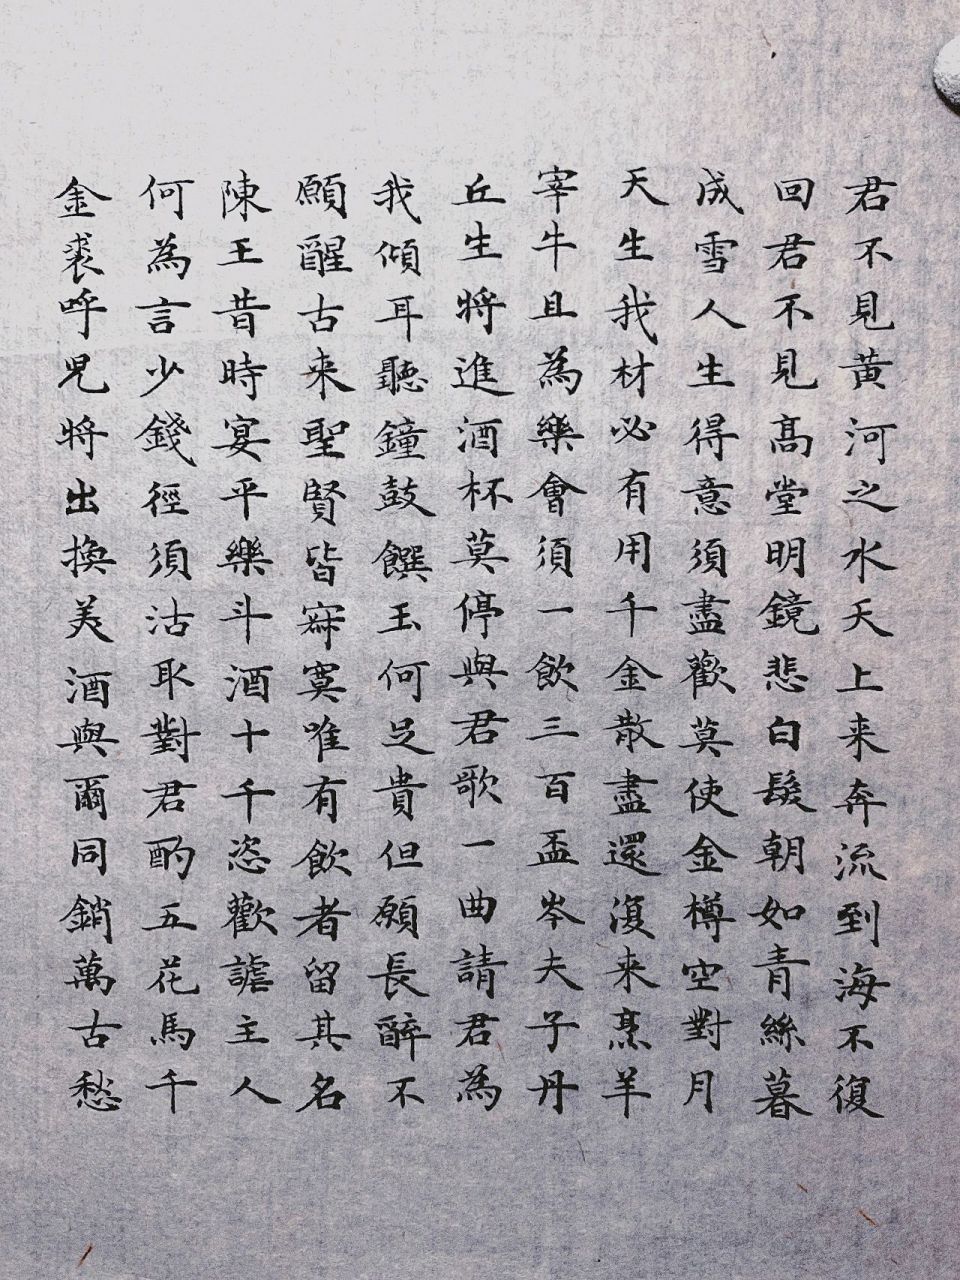 君不見黃河之水天上来奔流到海不復
回君不見高堂明鏡悲白髮朝如青絲暮
成雪人生得意須盡歡莫使金樽空對月
天生我材必有用千金散盡還復来烹羊
宰牛且為樂會須一飲三百盃岑夫子丹
丘生將進酒杯莫停與君歌一曲請君為
我傾耳聽鐘鼓饌玉何足貴但願長醉不
願醒古来聖賢皆寂寞唯有飲者留其名
陳王昔時宴平樂斗酒十千恣歡謔主人
何為言少錢徑須沽取對君酌五花馬千
金裘呼兒將出換美酒與爾同銷萬古愁